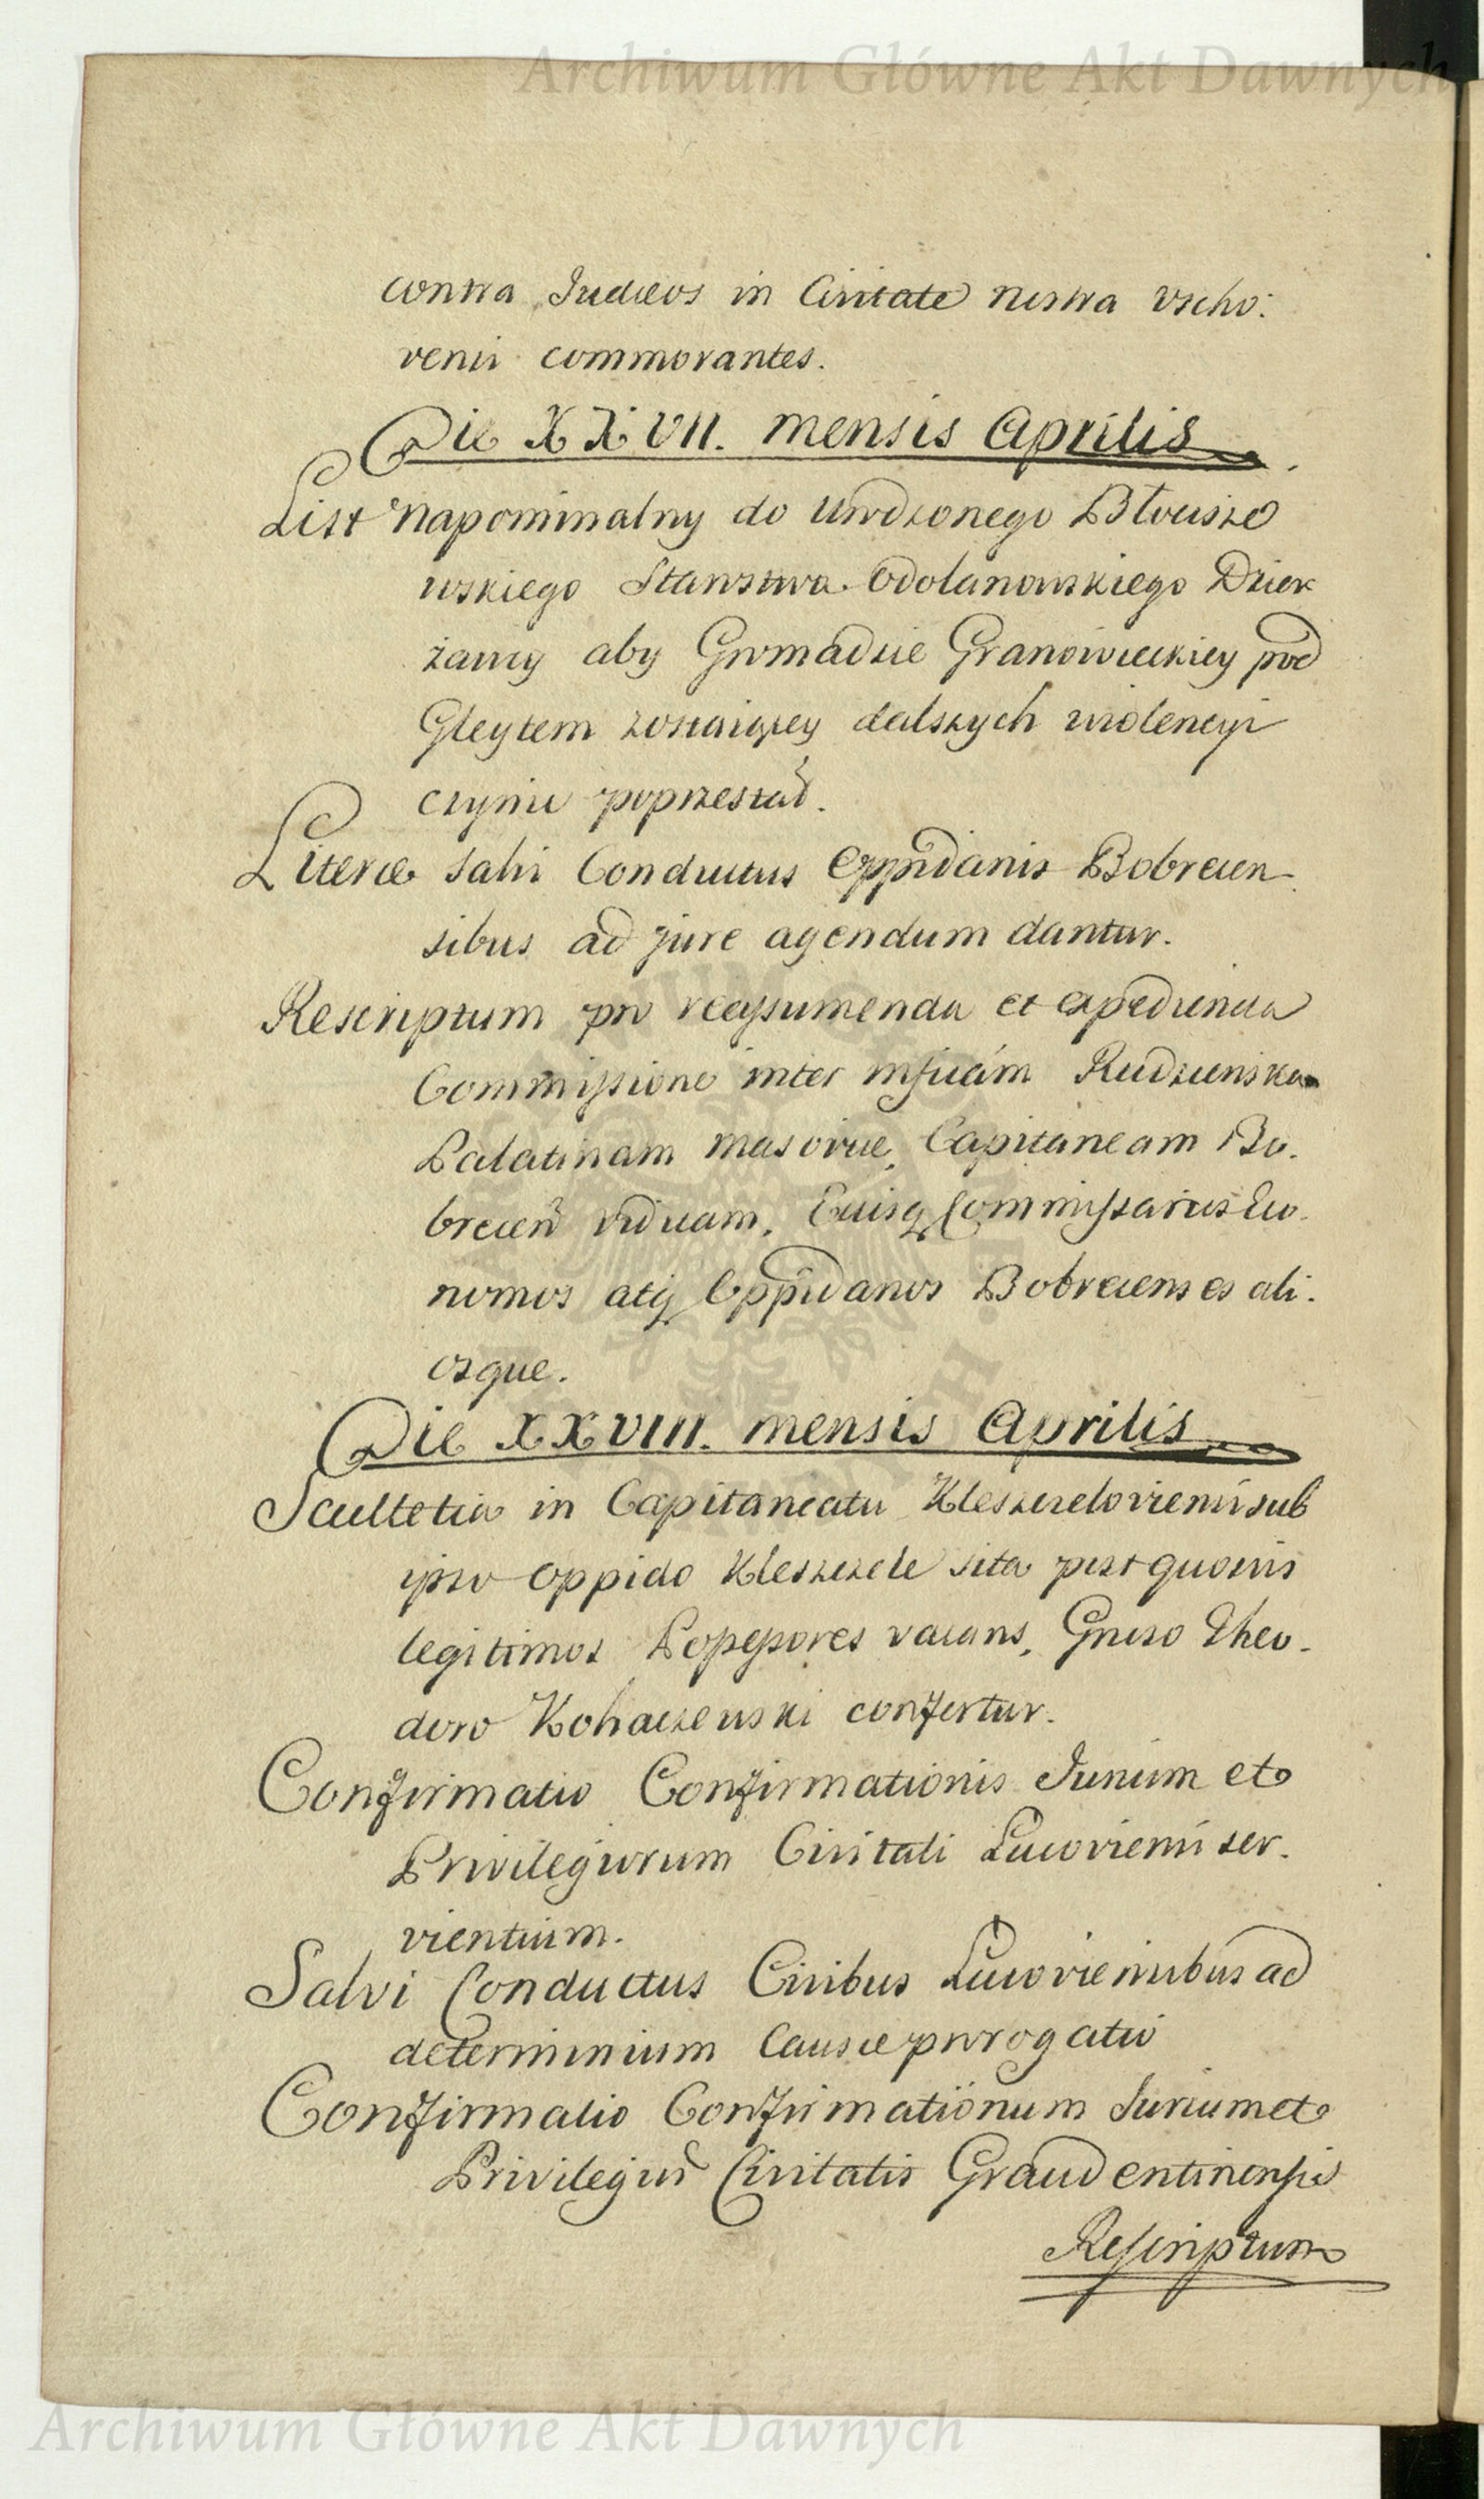 Archiwum Główne Akt Dawnych
contra Judæos in Civitate nostra Vscho:
vensi commorantes.
Die XXVII. mensis Aprilis.
List napominalny do Urodzonego Błoiszo
wskiego Starostwa Odolanowskiego Dzier
żawcy aby Gromadzie Granowieckiey pod
Gleytem zostaiącey dalszych violencyi
czynić poprzestał.
Literæ Salvi Conductus Oppidanis Bobrecen-
sibus ad jure agendum dantur.
Rescriptum pro reassumenda et expedienda
Commissione inter Mficám Rudzienska
Palatinam Masoviæ, Capitaneam Bo.
brecen̄ viduam, Eiusq Commissarios Eco.
nomos atq Oppidanos Bobrecenses ali.
osque.
Die XXVIII. mensis Aprilis
Scultetia in Capitaneatu Kleszczeloviensi sub
ipso Oppido Kleszczele sita post quosvis
legitimos Possessores vacans, Gneso Theo-
doro Kohaczewski confertur.
Confirmatio Confirmationis Jurium et
Privilegiorum Civitati Lucoviensi ser.
vientium.
Salvi Conductus Civibus Lucoviensibus ad
determinium Causæ prorogatio
Confirmatio Confirmationum Jurium et
Privilegior̄ Civitatis Graudentinensis
Rescriptum
Archiwum Główne Akt Dawnych